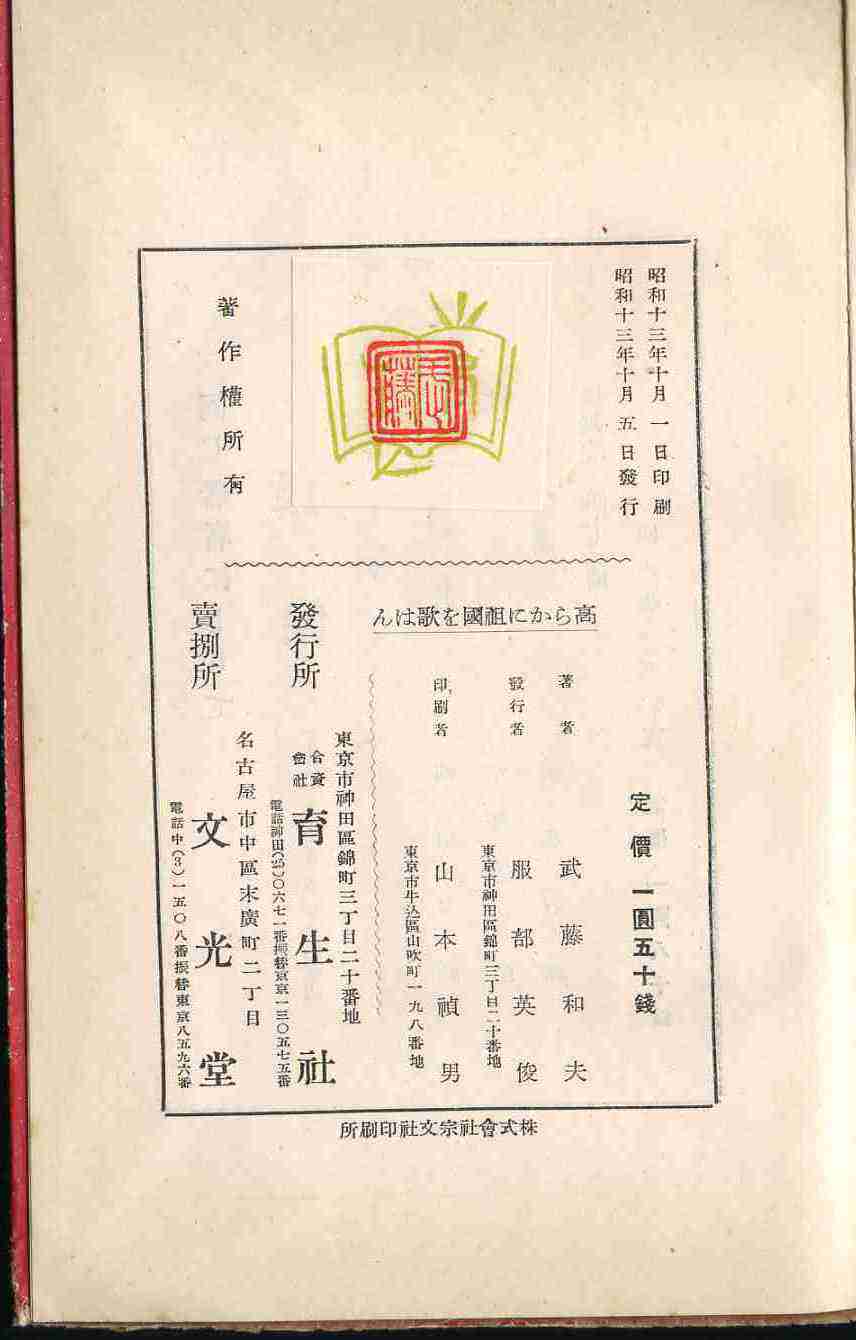 昭和十三年十月一日印刷
昭和十三年十月五日發行
武藤
著作權所有
高らかに祖國を歌はん
定價一圓五十錢
著者 武藤和夫
發行者 服部英俊
東京市神田區錦町三丁目二十番地
印刷者 山本禎男
東京市牛込區山吹町一九八番地
東京市神田區錦町三丁目二十番地
發行所 合資會社 育生社
電話神田(25)〇六七一番振替東京一三〇五七五番
名古屋市中區末廣町二丁目
賣捌所 文光堂
電話中(3)一五〇八番振替東京八五九六番
株式會社宗文社印刷所